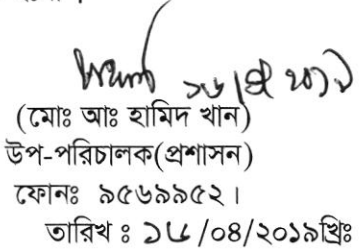 (মোঃ আঃ হামিদ খান)
উপ-পরিচালক(প্রশাসন)
ফোনঃ ৯৫৬৯৯৫২।
তারিখ : ১৮/০৪/২০১৯খ্রিঃ